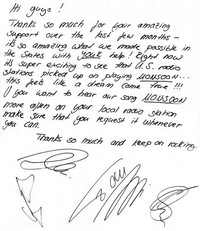 Hi guys!
Thanks so much for your amazing
support over the last few months -
it's so amazing what we made possible in
the States with YOUR help! Right now
it's super exciting to see that U.S. radio
stations picked up on playing MONSOON...
this feels like a dream come true!!!
If you want to hear our song MONSOON
more often on your local radio station
make sure that you request it whenever
you can.
Thanks so much and keep on rocking.